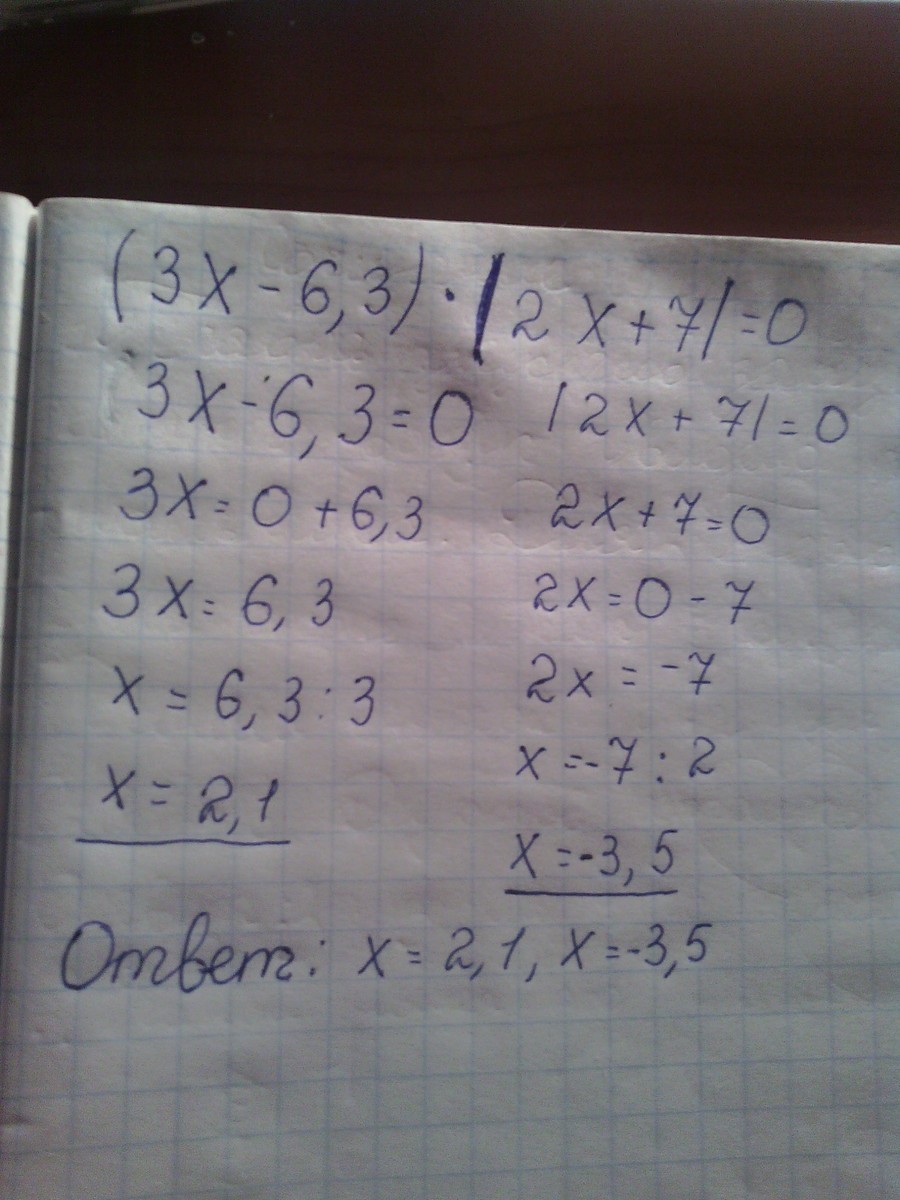 (3x - 6,3) · |2x + 7| = 0
3x - 6,3 = 0 |2x + 7| = 0
3x = 0 + 6,3 2x + 7 = 0
3x = 6,3 2x = 0 - 7
x = 6,3 : 3 2x = -7
x = 2,1 x = -7 : 2
x = -3,5
Ответ: x = 2,1, x = -3,5